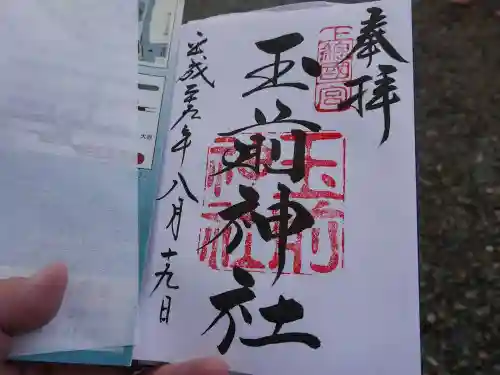 奉拝
上総国一宮
玉前神社
玉前神社
平成二十六年八月十九日